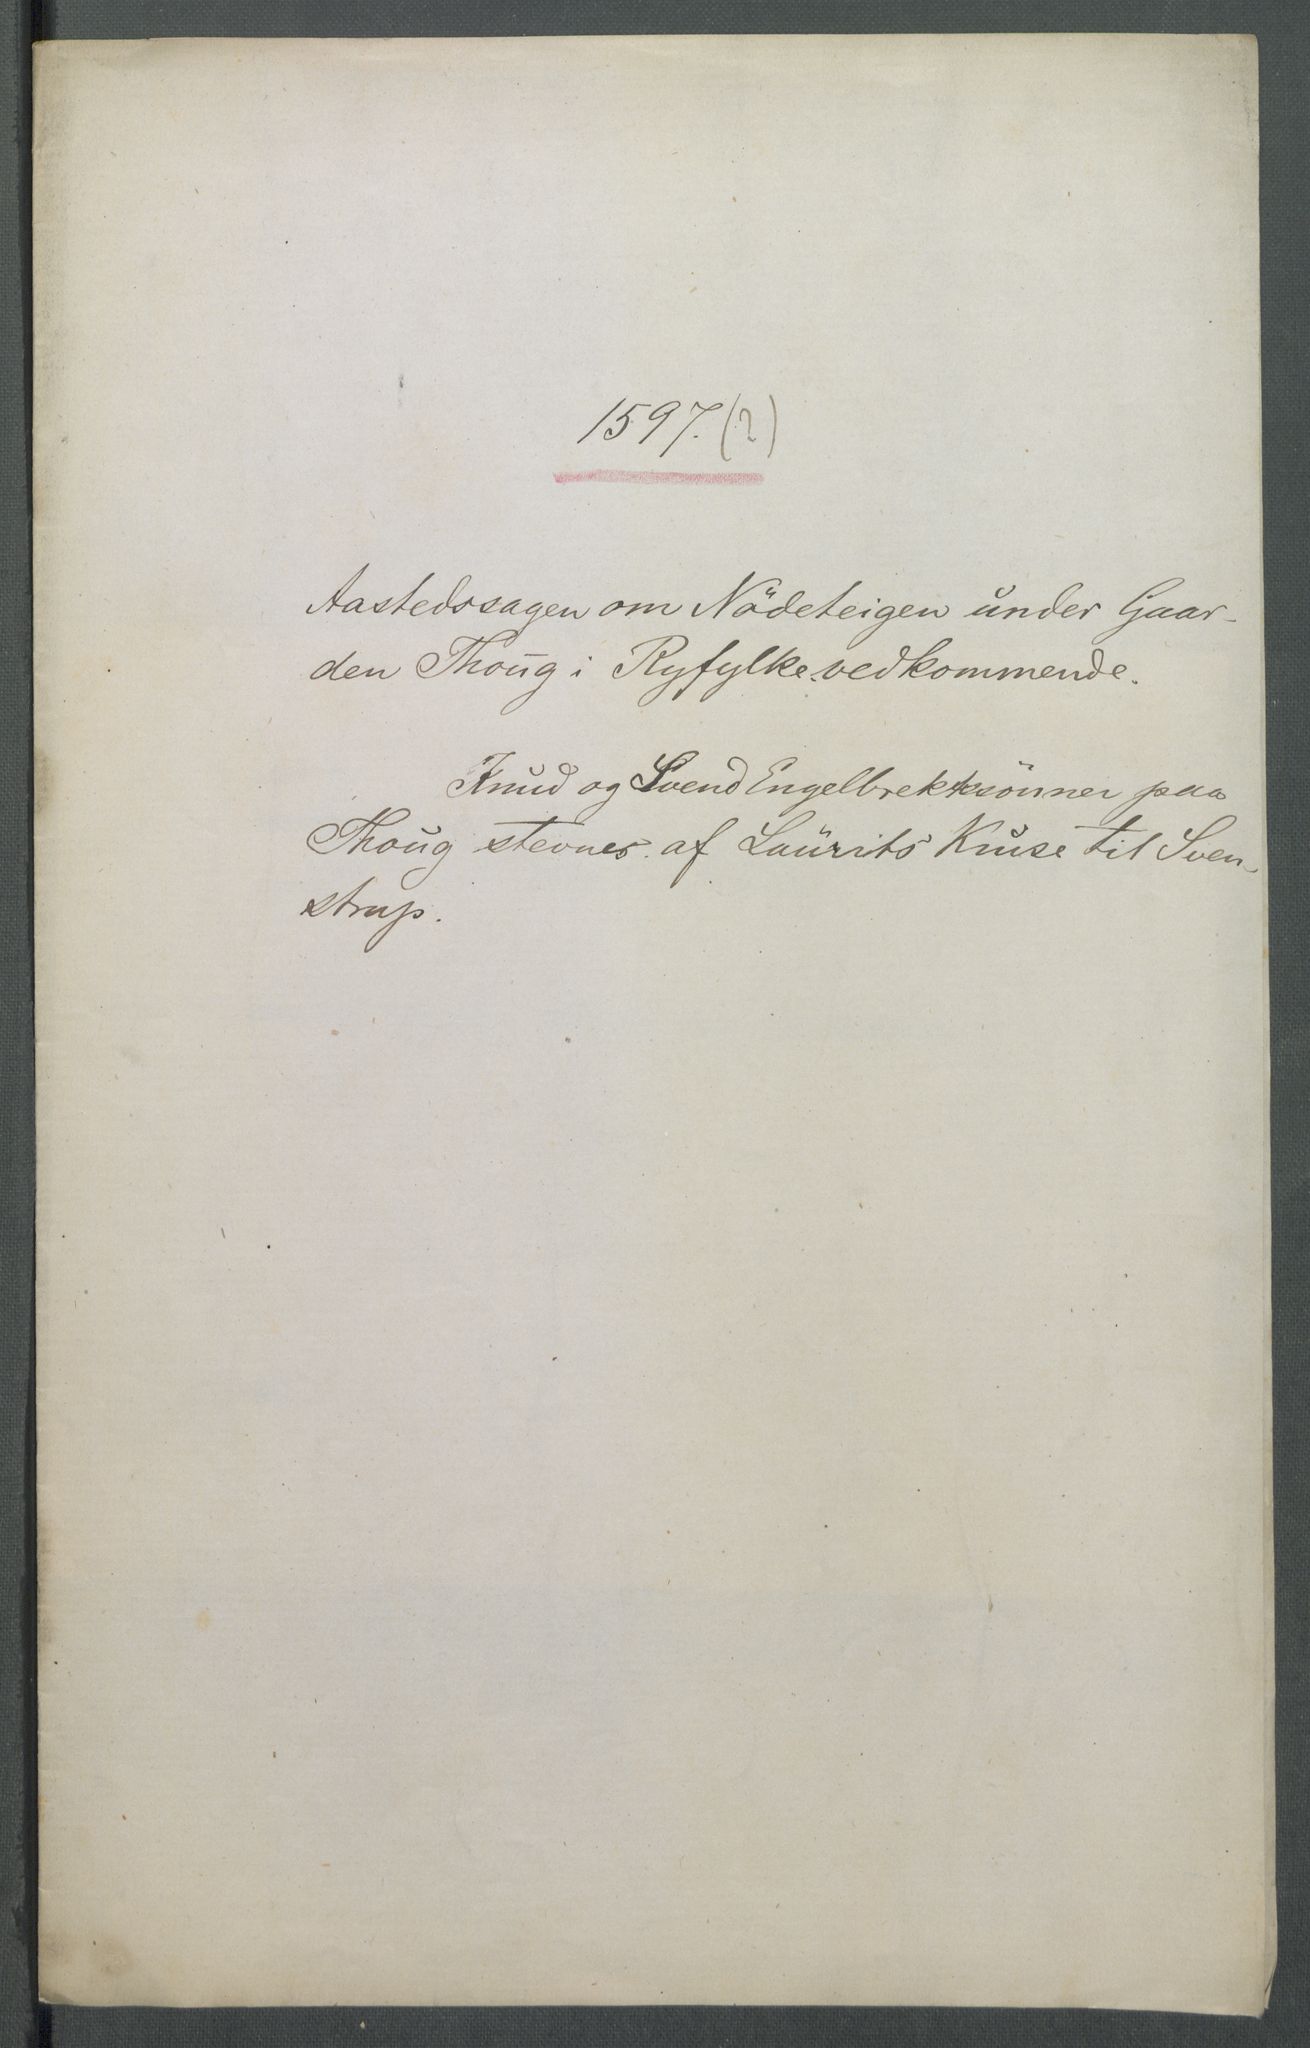 1597. (2)
Aastedssagen om Nödeteigen under Gaar-
den Thoug i Ryfylke vedkommende.
Knud og Svend Engelbrektsönner paa
Thoug stevnes af Laurits Kruse til Sven-
strup.